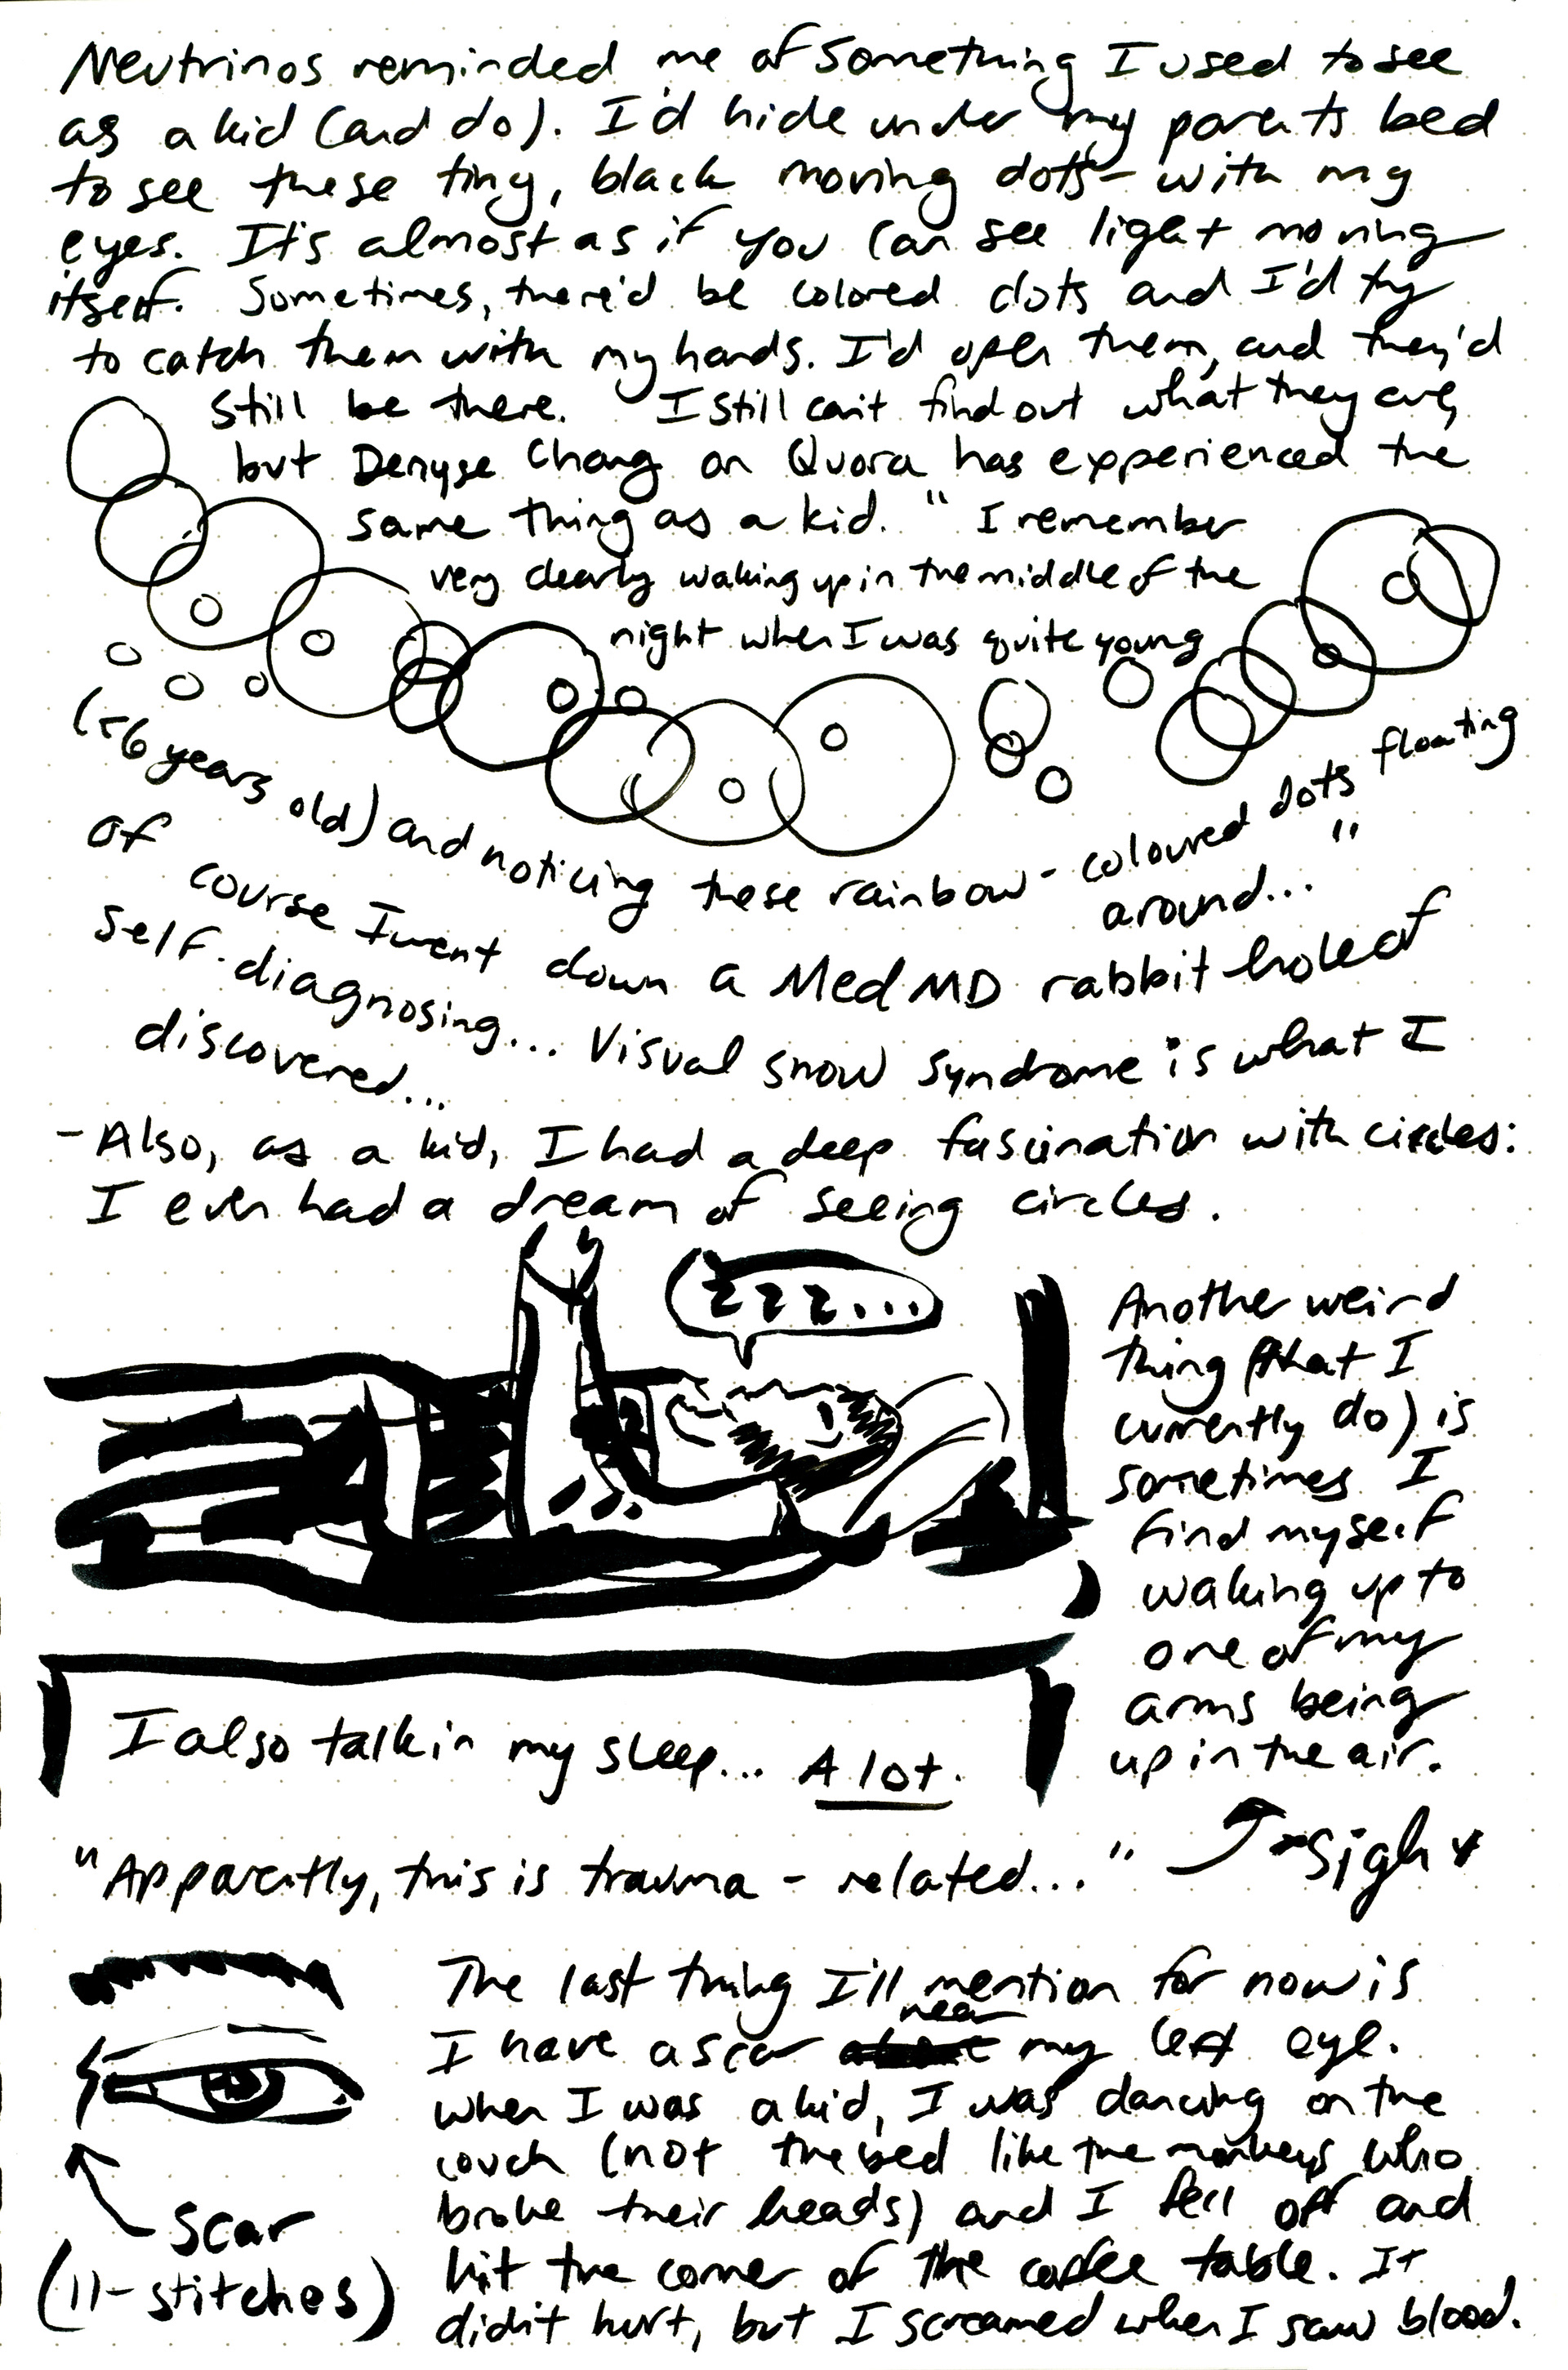 Neutrinos reminded me of something I used to see
as a kid (and do). I'd hide under my parents bed
to see these tiny, black moving dots - with my
eyes. It's almost as if you can see light moving
itself. Sometimes, there'd be colored dots and I'd try
to catch them with my hands. I'd open them, and they'd
still be there. I still can't find out what they are,
but Denyse Chang on Quora has experienced the
same thing as a kid. "I remember
very clearly waking up in the middle of the
night when I was quite young
(<6 years old) and noticing these rainbow-coloured dots floating
around..."
Of course I went down a MedMD rabbit hole of
self-diagnosing... Visual snow syndrome is what I
discovered...
- Also, as a kid, I had a deep fascination with circles:
I even had a dream of seeing circles.
zzz...
Another weird
thing (that I
currently do) is
sometimes I
find myself
waking up to
one of my
arms being
up in the air.
I also talk in my sleep... A lot.
"Apparently, this is trauma-related..."
*sigh*
The last thing I'll mention for now is
I have a scar near my left eye.
When I was a kid, I was dancing on the
couch (not the bed like the monkeys who
broke their heads) and I fell off and
hit the corner of the coffee table. It
didn't hurt, but I screamed when I saw blood.
scar
(11-stitches)